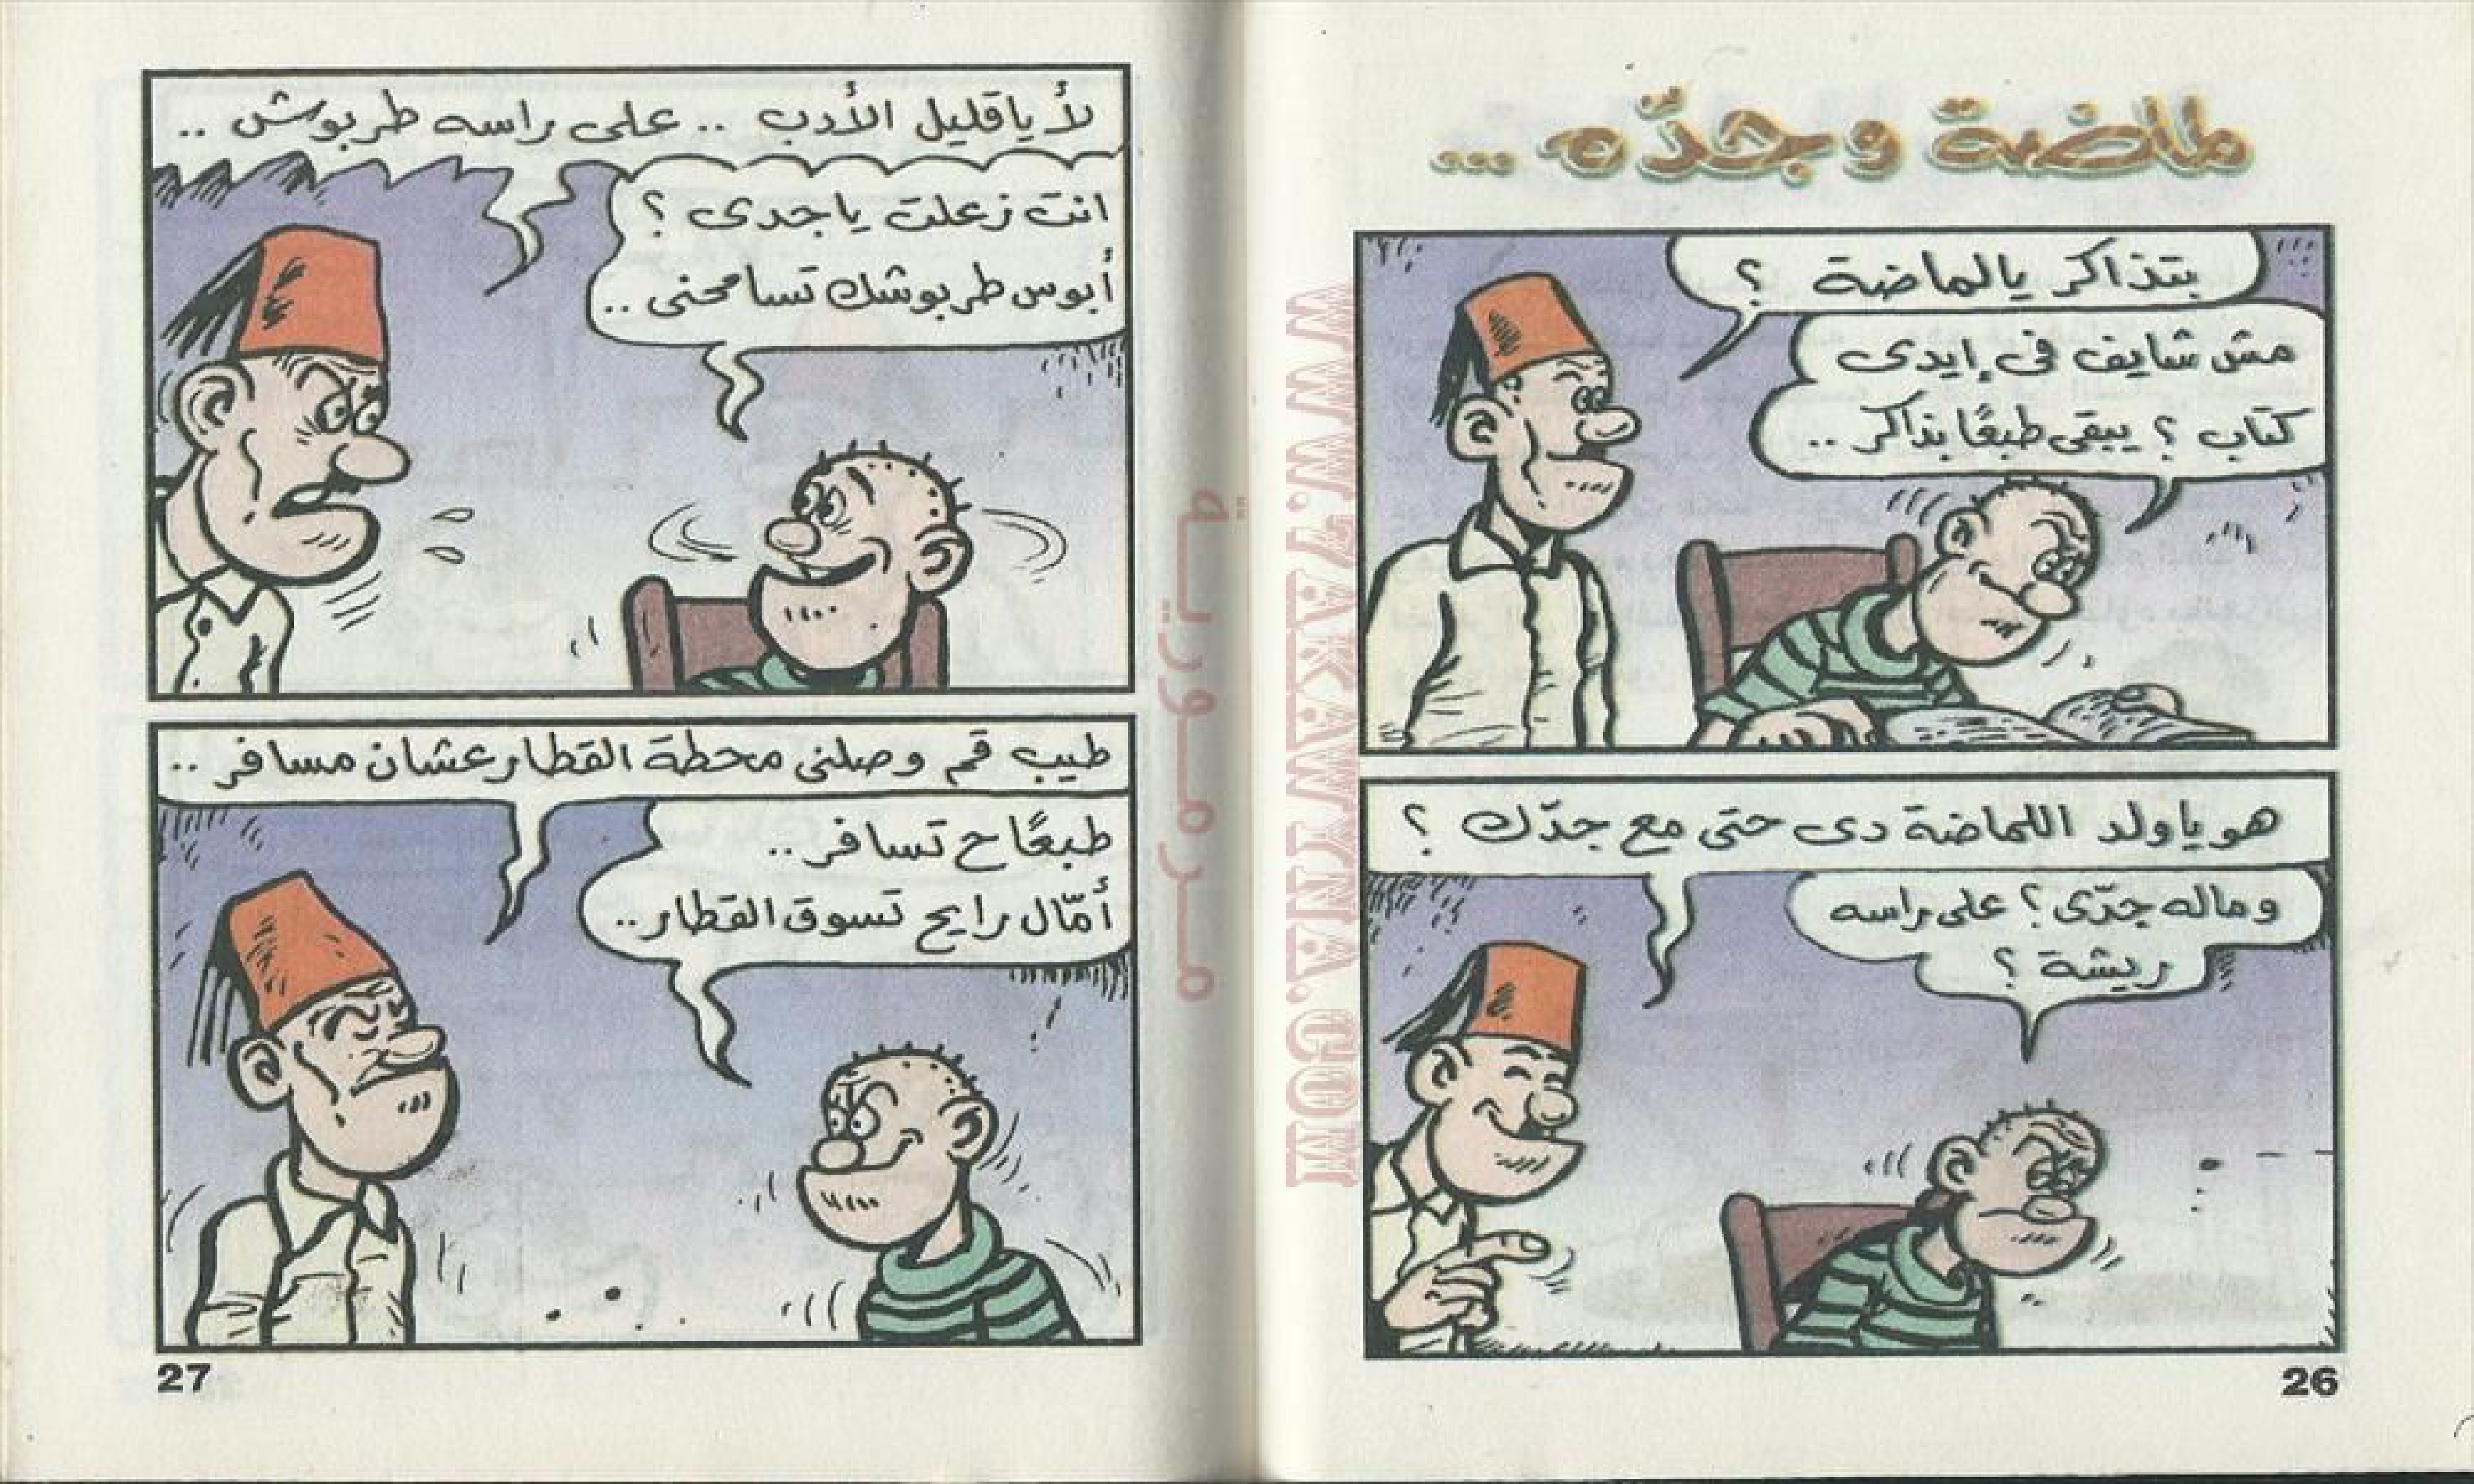 لماضة وجدّه ...
بتذاكر يالماضة ؟
مش شايف فى إيدى
كتاب ؟ يبقى طبعًا بذاكر ..
هو ياولد اللماضة دى حتى مع جدّك ؟
وماله جدّى ؟ على راسه
ريشة ؟
26
لأ ياقليل الأدب .. على راسه طربوش ..
انت زعلت ياجدى ؟
أبوس طربوشك تسامحنى ..
طيب قم وصلنى محطة القطار عشان مسافر ..
طبعًا ح تسافر ..
أمّال رايح تسوق القطار ..
27
مـرمـوريـة
WWW.7AKAWYNA.COM